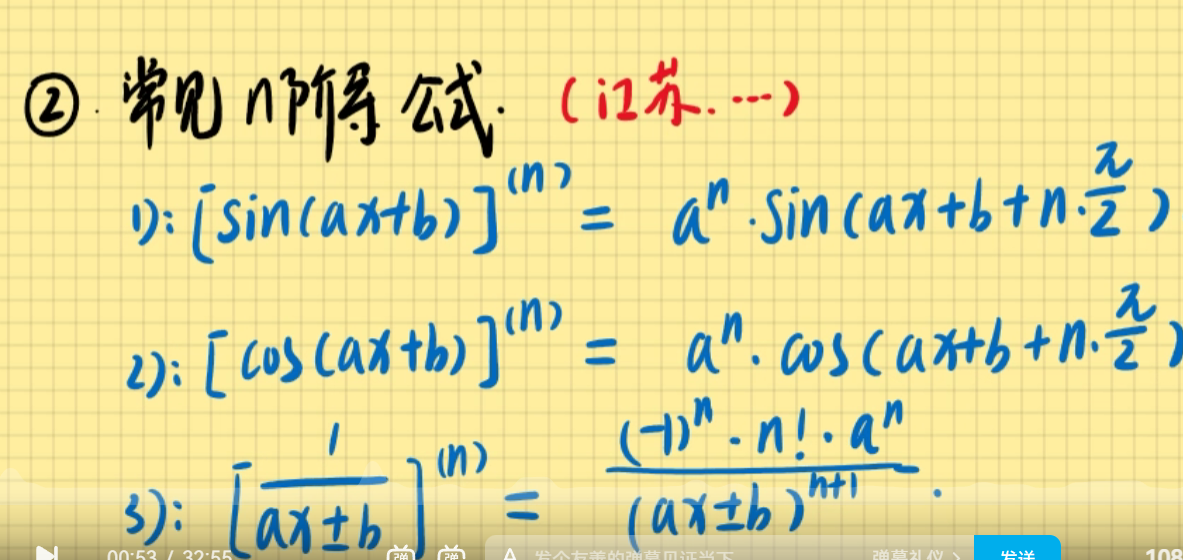 ② 常见n阶导公式. (江苏. …)
1): [sin(ax+b)]^(n) = a^n · sin(ax+b+n·π/2)
2): [cos(ax+b)]^(n) = a^n · cos(ax+b+n·π/2)
3): [1/(ax±b)]^(n) = (-1)^n · n! · a^n/(ax±b)^(n+1).
00:53 / 32:55 弹 弹 A 发个友善的弹幕见证当下 弹幕礼仪 > 发送 108